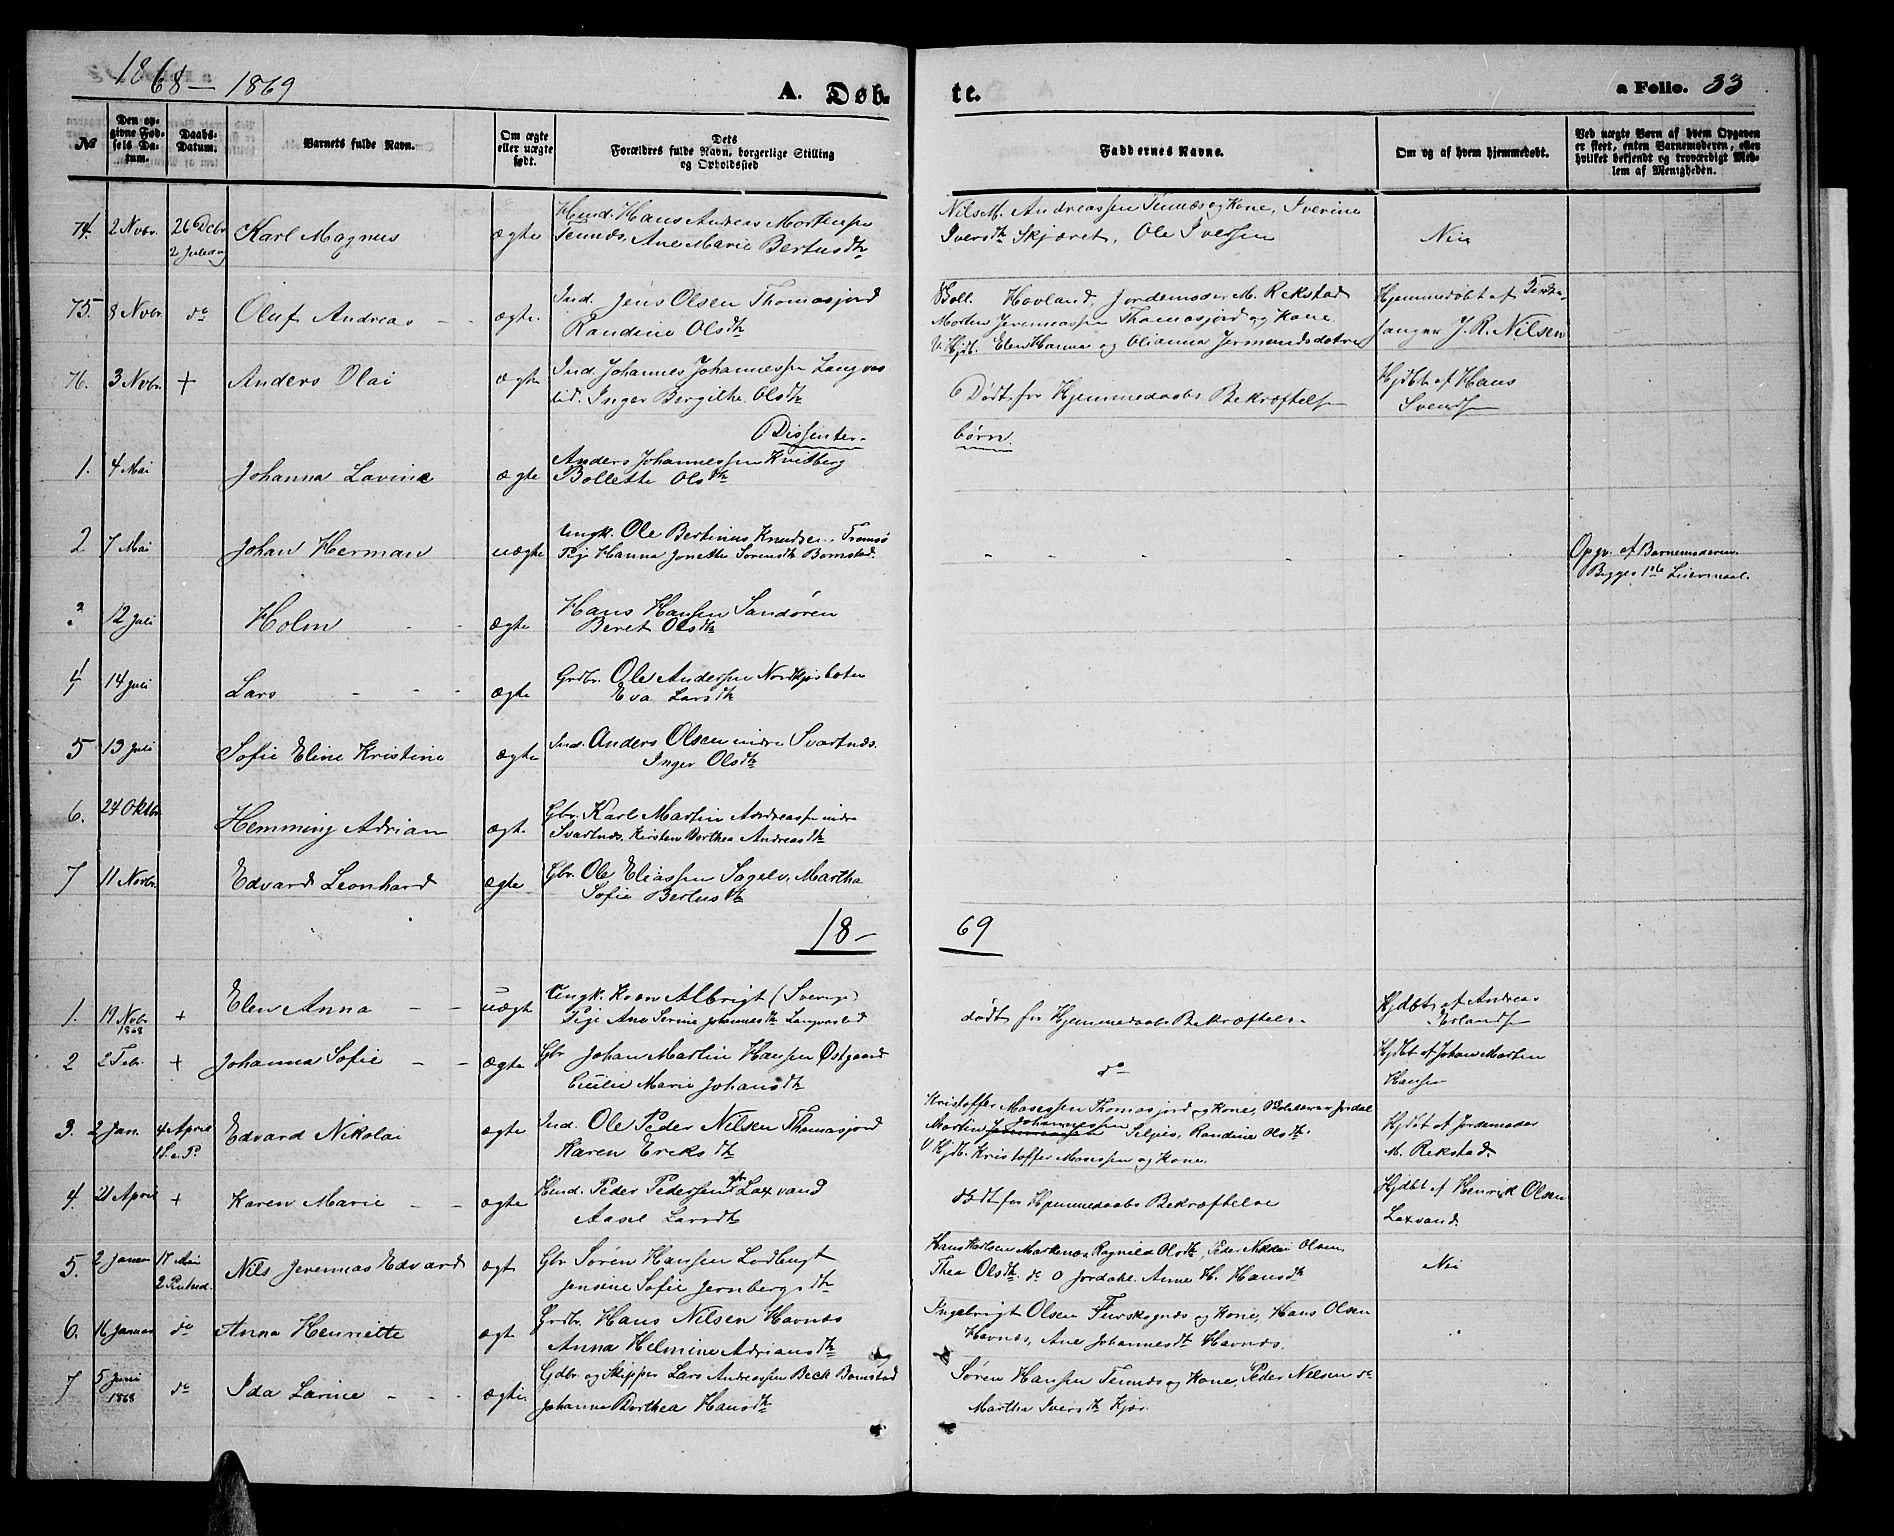 1868 — 1869
A. Døb-
te.
a Folio. 33
№
Den op-
givne Fød-
sels Da-
tum.
Daabs-
Datum.
Barnets fulde Navn.
Om ægte
eller uægte
født.
Dets
Forældres fulde Navn, borgerlige Stilling
og Opholdssted
Faddernes Navne.
Om og af hvem hjemmedøbt.
Ved uægte Børn af hvem Opgaven
er skeet, enten Barnemoderen, eller
hvilket bekjendt og troværdigt Med-
lem af Menigheden.
74. 2 Novbr. 26 Decbr 2 Juledag Karl Magnus ægte
Huusd. Hans Andreas Mortensen
Tennes, Ane Marie Bertusdtr
Nils M. Andreassen Tennes og Kone, Iverine
Iversdtr Skjæret, Ole Iversen
Nei
75. 8 Novbr. do Oluf Andreas - - ægte.
Ind. Jens Olsen Thomasjord
Randine Olsdtr
Boll. Hovland, Jordemoder M. Rekstad
Morten Jeremiassen Thomasjord og Kone
V. Hjdb. Elen Hanna og Olianna Jermundsdøtre
Hjemmedøbt af
sanger J. R. Nilsen
76. 3 Novbr. + Anders Olai ægte
Ind. Johannes Johannessen Langvas
lid. Inger Bergithe Olsdtr
Dødt før Hjemmedaabs Bekræftelse
Hjdbt af Hans
Svendsen
Dissenter-
børn.
1. 4 Mai Johanna Lavine ægte
Anders Johannessen Kvitberg
Bollette Olsdtr
2 7 Mai Johan Herman uægte
Ungk. Ole Bertinus Knudsen, Tromsø
Pige Hanna Jonette Sørensdtr Bomstad.
Opgv. af Barnemoderen.
Begges 1ste Leiermaal.
3. 12 Juli Holm - - ægte
Hans Hansen Sandøren
Beret Olsdtr
4 14 Juli Lars - - - ægte
Grdbr. Ole Andersen Nordkjosboten
Eva Larsdtr
5 13 Juli Sofie Eline Kristine ægte
Ind. Anders Olsen indre Svartnæs.
Inger Olsdtr
6. 24 Oktbr. Hemming Adrian ægte
Gbr. Karl Martin Andreassen indre
Svartnæs, Kirsten Dorthea Andreasdtr
7 11 Novbr. Edvard Leonhard ægte
Gbr. Ole Eliassen Sagelv. Martha
Sofie Bertusdtr
18—
69
1. 19 Novbr 1868 + Elen Anna - - uægte
Ungk. Albrigt (Sverige)
Pige Ane Serine Johannesdtr Langvaslid
dødt før Hjemmedaabs Bekræftelse.
Hjdbt af Andreas
Erlandsen
2 2 Febr. + Johanna Sofie - - ægte
Gbr Johan Martin Hansen Østgaard
Cicilie Marie Johansdtr
do
Hjdbt af Johan Martin
Hansen
3. 2 Jan. 4 April 1 S. e. P. Edvard Nikolai ægte
Ind. Ole Peder Nilsen Thomasjord
Karen Eriksdtr
Kristoffer Mosessen Thomasjord og Kone, Jordal
Martin Johannessen Seljes, Randine Olsdtr.
V Hjdb. Kristoffer Mosessen og Kone.
Hjdbt af Jordemoder
M. Rekstad.
4. 21 April + Karen Marie - - ægte
Huusd. Peder Pedersen Laxvand
Aasel Larsdtr
dødt før Hjemmedaabs Bekræftelse
Hjdbt af Henrik Olsen
Laxvand
5. 2 Januar 17 Mai 2 Pintsed. Nils Jeremias Edvard ægt
Gbr Søren Hansen Lodbugt
Jensine Sofie Jernbergsdtr
Hans Karlsen Markenæs, Ragnild Olsdtr, Peder Nikolai Olsen,
Thea Olsdtr. do O Jordahl. Anne H. Hansdtr
Nei
6. 16 Januar do Anna Henriette ægt
Grdbr. Hans Nilsen Havnæs
Anna Helmine Adriansdtr
Ingebrigt Olsen Furskognæs og Kone, Hans Olsen
Havnæs, Ane Johannesdtr Havnæs.
7 5 Juni 1868 do Ida Lavine - - ægte.
Gdbr og Skipper Lars Andreassen Beck Bomstad
Johanna Dorthea Hansdtr
Søren Hansen Tennes og Kone, Peder Nilsen do
Martha Iversdtr Kjos.